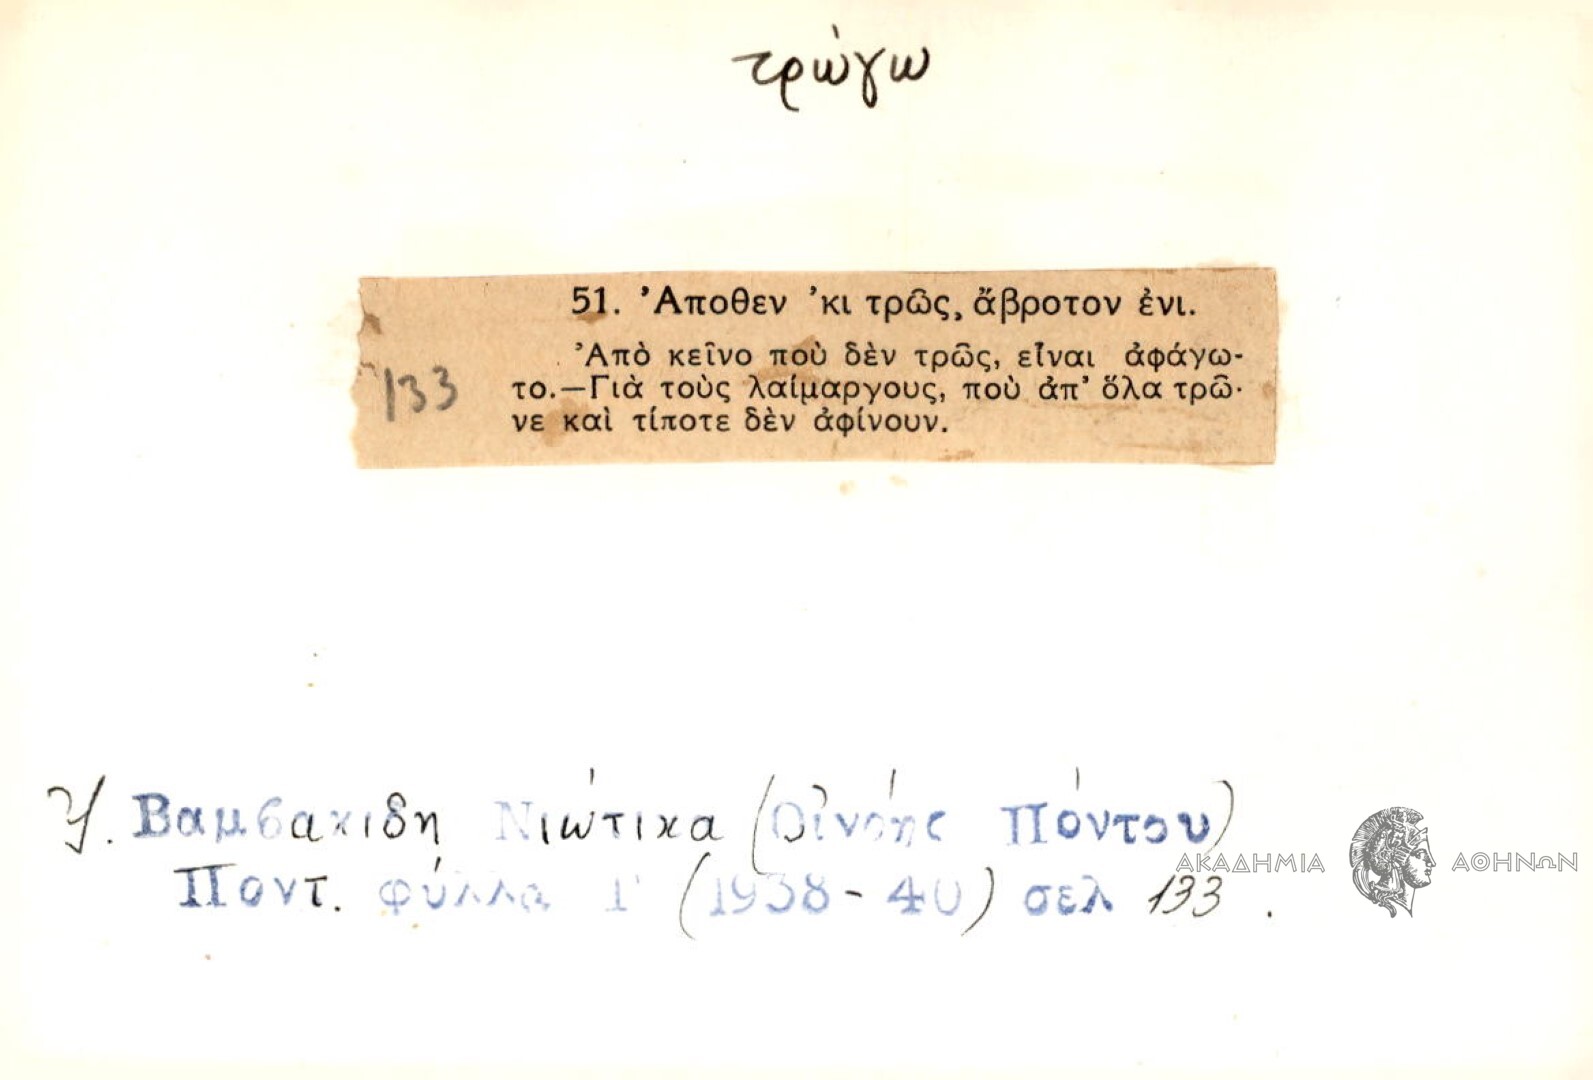 τρώγω
51. Ἀποθεν ’κι τρῶς, ἄβροτον ἐνι.
Ἀπὸ κεῖνο ποὺ δὲν τρῶς, εἶναι ἀφάγω-
το.—Γιὰ τοὺς λαίμαργους, ποὺ ἀπ’ ὅλα τρῶ-
νε καὶ τίποτε δὲν ἀφίνουν.
133
Βαμβακιδη Νιώτικα (Οἰνόης Πόντου)
Ποντ. φύλλα Γ (1938-40) σελ 133.
ΑΚΑΔΗΜΙΑ ΑΘΗΝΩΝ